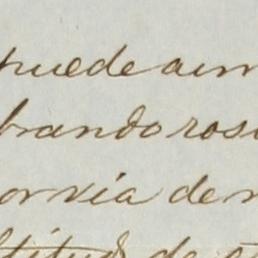 puede aun
brando ros
or via de
titud de